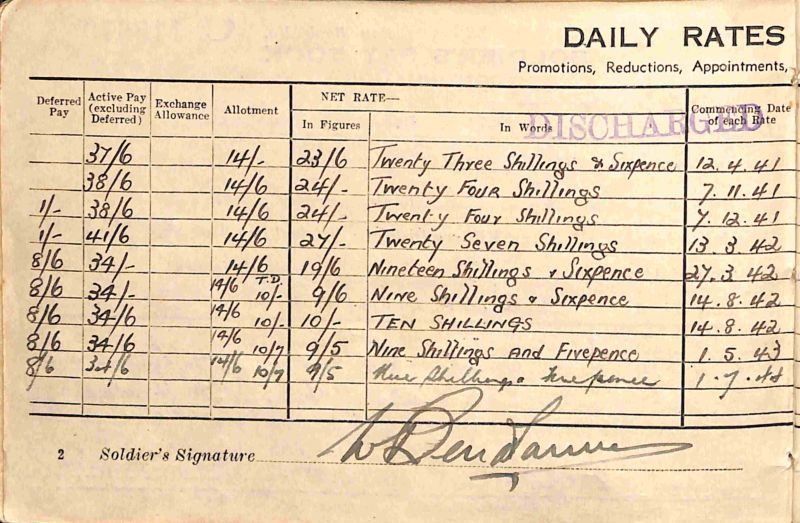 DAILY RATES
Promotions, Reductions, Appointments,
Deferred Pay Active Pay (excluding Deferred) Exchange Allowance Allotment NET RATE— In Figures In Words Commencing Date of each Rate
DISCHARGED
37/6 14/- 23/6 Twenty Three Shillings & Sixpence 12.4.41
38/6 14/6 24/- Twenty Four Shillings 7.11.41
1/- 38/6 14/6 24/- Twenty Four Shillings 7.12.41
1/- 41/6 14/6 27/- Twenty Seven Shillings 13 3 42
8/6 34/- 14/6 19/6 Nineteen Shillings & Sixpence 27.3 42
8/6 34/- 14/6 T.D. 10/- 9/6 Nine Shillings & Sixpence 14.8.42
8/6 34/6 14/6 10/- 10/- TEN SHILLINGS 14.8.42
8/6 34/6 14/6 10/7 9/5 Nine Shillings And Fivepence 1.5.43
8/6 34/6 14/6 10/7 9/5 Nine Shillings & Fivepence 1.7.44
2 Soldier's Signature